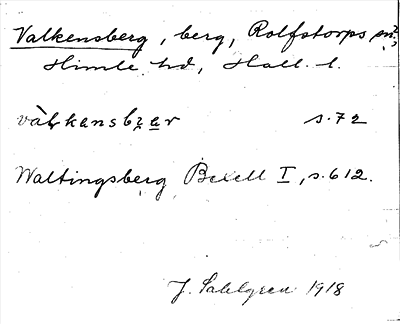 Valkensberg, berg, Rolfstorps sn,
Himle hd, Hall. l.
s. 72
Waltingsberg Bexell I, s. 612.
J. Sahlgren 1918